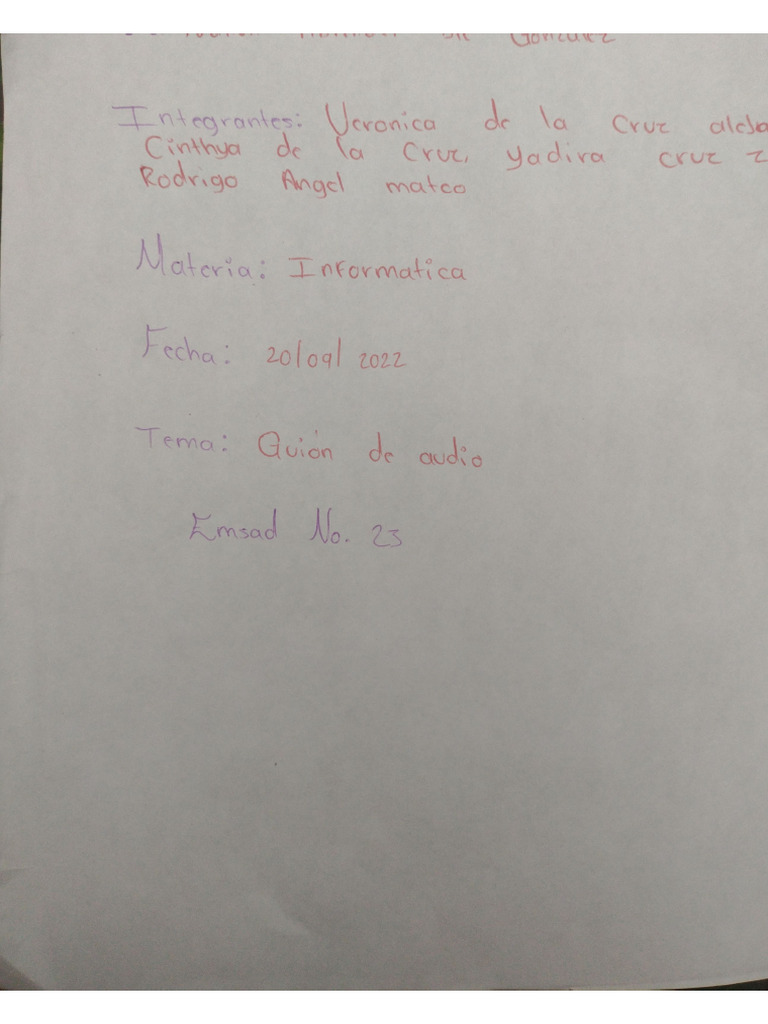 Gonzalez
Integrantes: Veronica de la Cruz
Cinthya de la Cruz, Yadira cruz z
Rodrigo Angel mateo
Materia: Informatica
Fecha: 20/09/2022
Tema: Guión de audio
Emsad No. 25